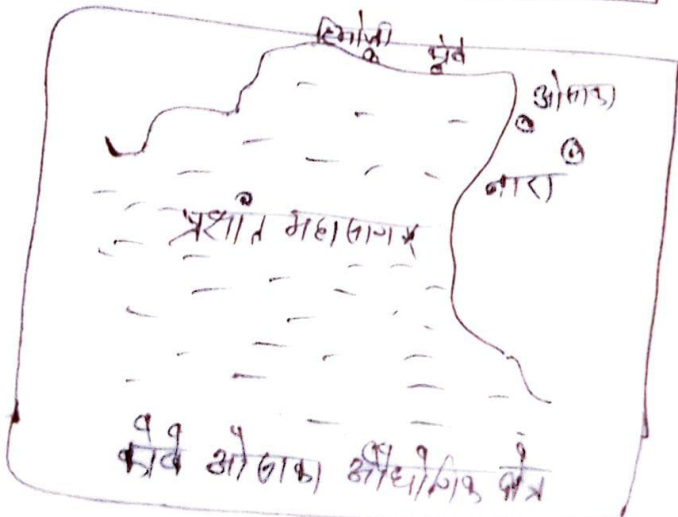 हिमोजी कोबे
ओसाका
नारा
प्रशांत महासागर
कोबे ओसाका औधोगिक क्षेत्र